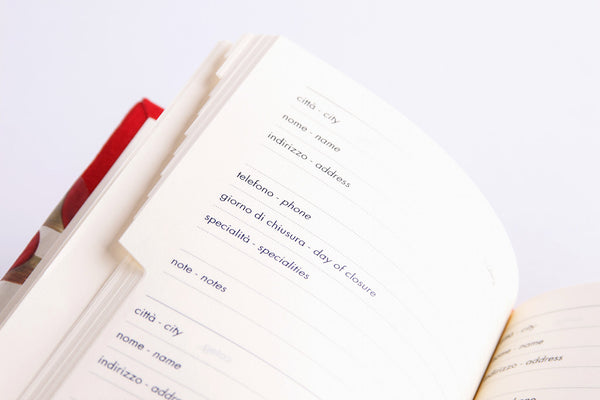 città - city
nome - name
indirizzo - address
telefono - phone
giorno di chiusura - day of closure
specialità - specialities
note - notes
città - city
nome - name
indirizzo - address
città - city
nome - name
indirizzo - address